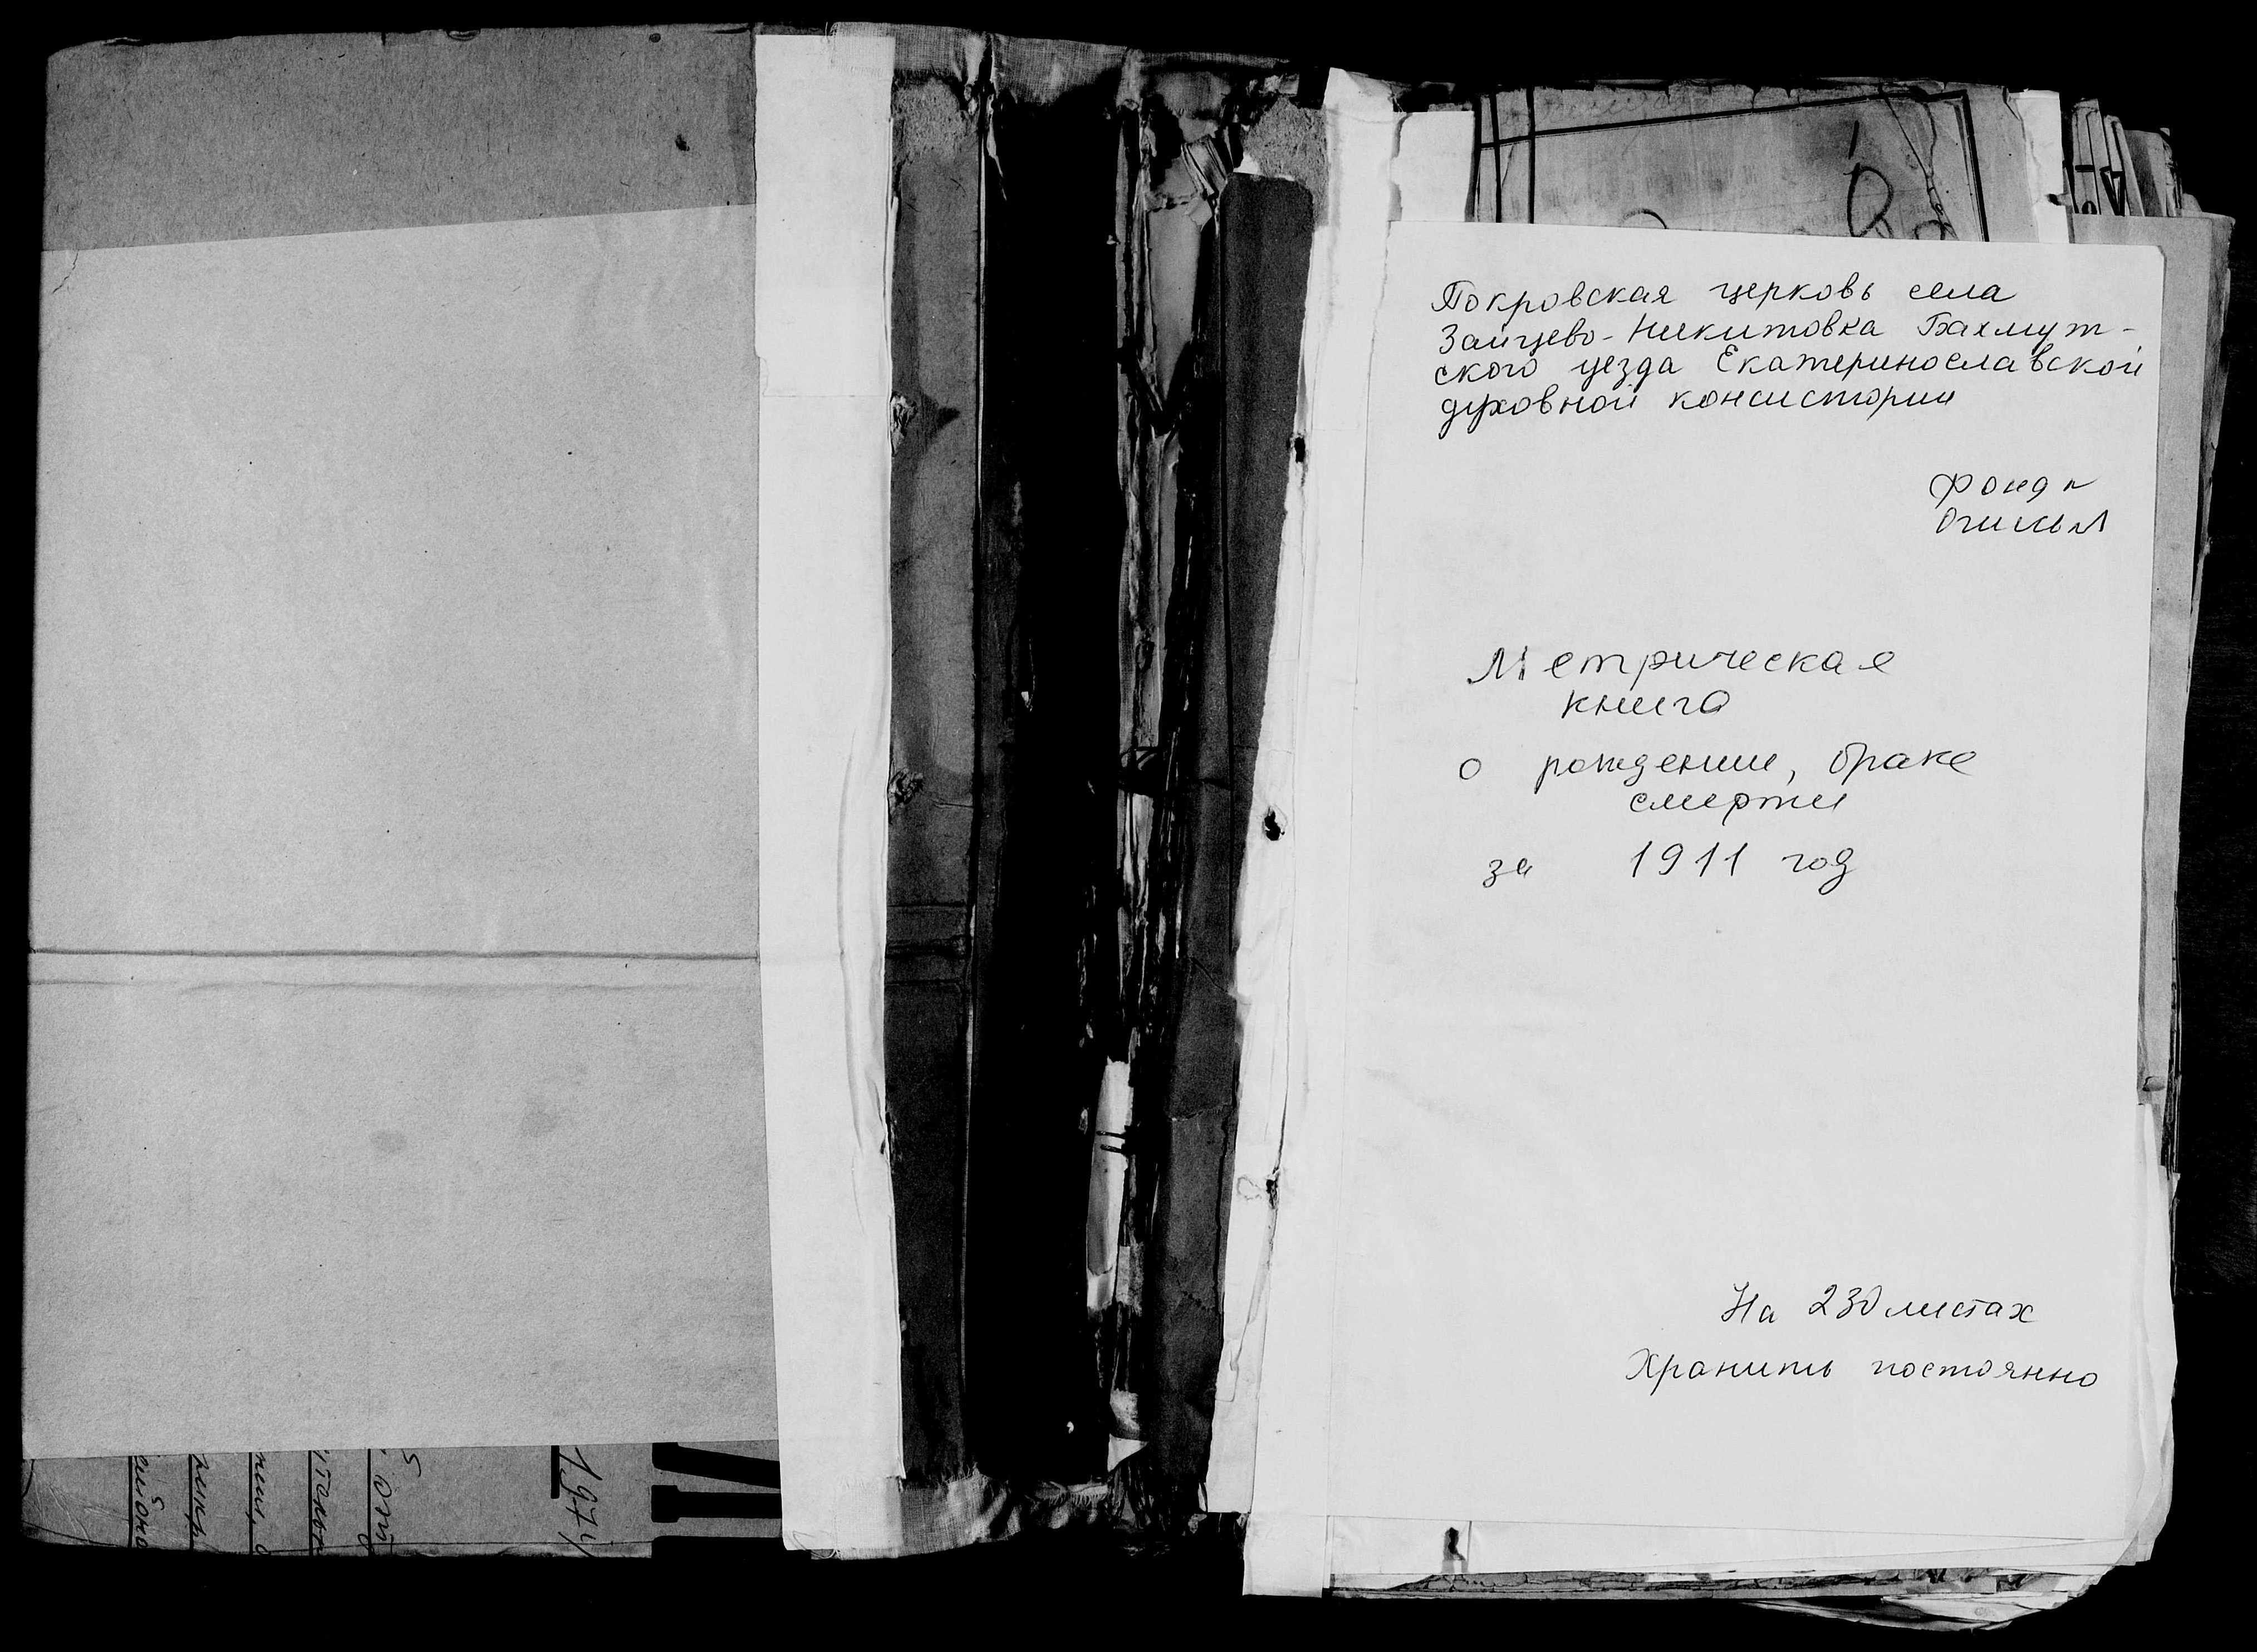 Покровская церковь села
Зайцево-Никитовка Бахмут-
ского уезда Екатеринославской
духовной консистории
фонд
опись
Метрическая
книга
о рождении, браке
смерти
за 1911 год
На 230 листах
Хранить постоянно
197